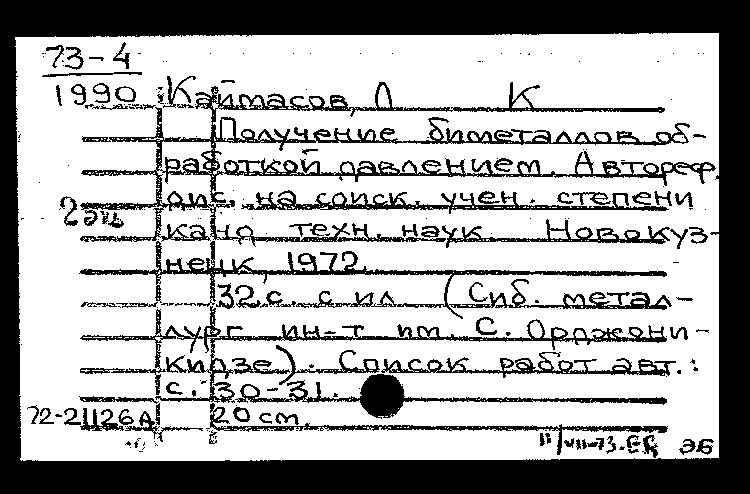 73-4
1990 Каймасов, Л К
Получение биметаллов об-
работкой давлением. Автореф.
дис. на соиск. учен. степени
2 экз
канд техн. наук Новокуз-
нецк, 1972.
32 с. с ил (Сиб. метал-
лург ин-т им. С. Орджони-
кидзе). Список работ авт.:
с. 30-31.
72-21126А 20 см.
11/VII-73. ЭБ